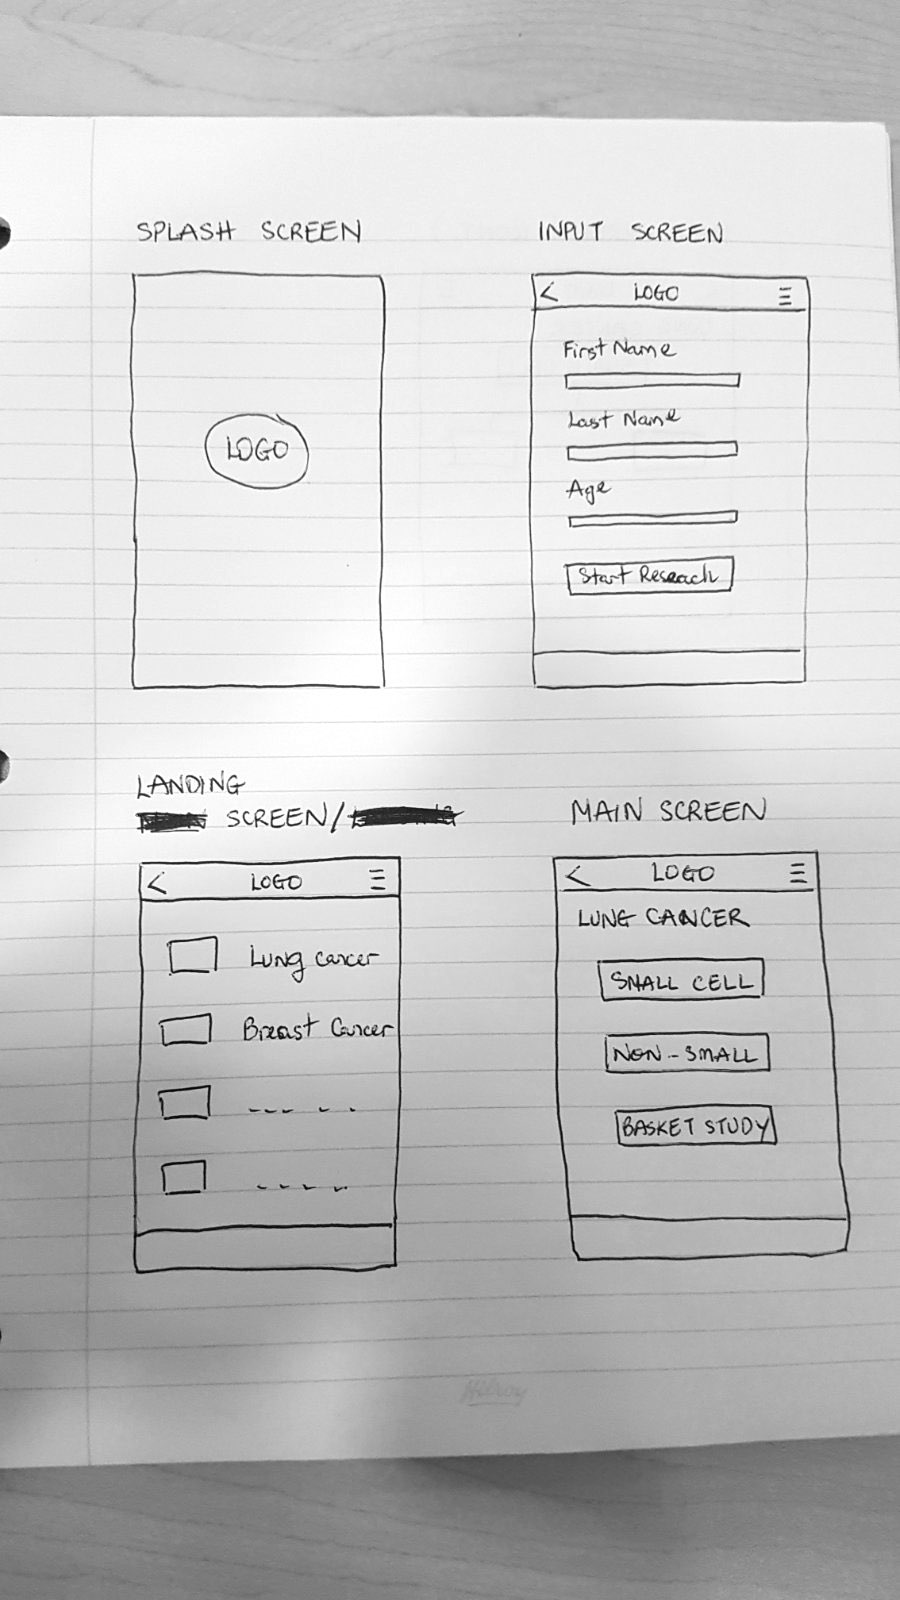 SPLASH SCREEN
LOGO
INPUT SCREEN
< LOGO
First Name
Last Name
Age
Start Reseach
LANDING
SCREEN/
< LOGO
Lung cancer
Breast Cancer
--- - -
- - - -
MAIN SCREEN
< LOGO
LUNG CANCER
SMALL CELL
NON-SMALL
BASKET STUDY
Hilroy